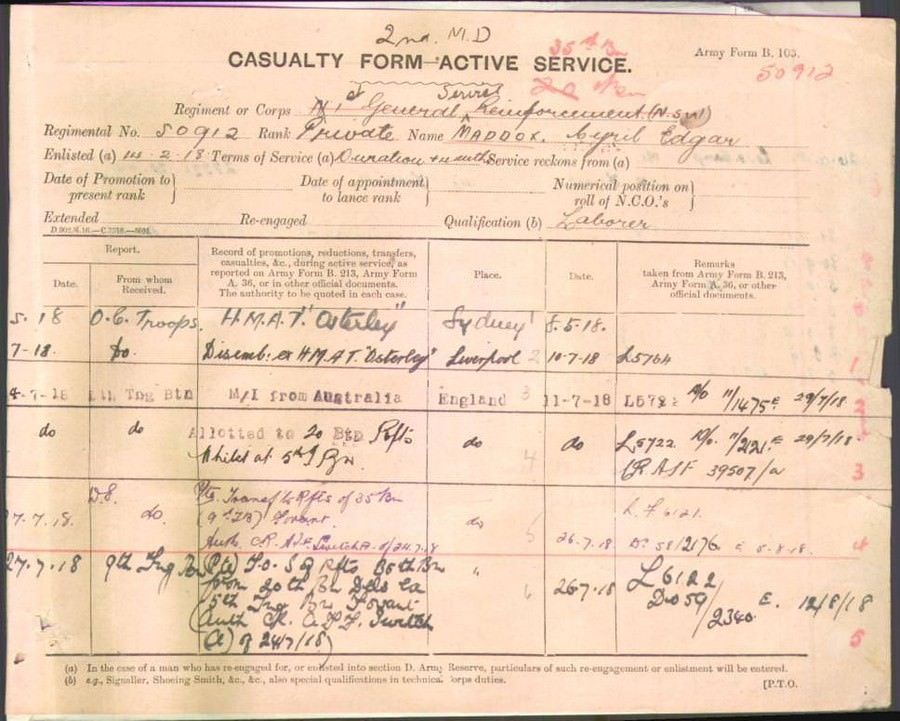 2nd. M.D
35th Bn
CASUALTY FORM—ACTIVE SERVICE.
Army Form B. 103.
50912
20
Service
Regiment or Corps General Reinforcement (N.S.W)
Regimental No. 50912 Rank Private Name MADDOX. Cyril Edgar
Enlisted (a) 14-2-18 Terms of Service (a) Duration Service reckons from (a)
Date of Promotion to present rank } Date of appointment to lance rank } Numerical position on roll of N.C.O.'s }
Extended Re-engaged Qualification (b) Laborer
Report. Date. From whom Received.
Record of promotions, reductions, transfers, casualties, &c., during active service, as reported on Army Form B. 213, Army Form A. 36, or in other official documents. The authority to be quoted in each case.
Place.
Date.
Remarks taken from Army Form B. 213, Army Form A. 36, or other official documents.
5. 18 O.C. Troops. H.M.A.T. "Osterley" Sydney 8.5.18.
7-18. Do. Disemb. ex H.M.A.T. "Osterley" Liverpool 2 10-7-18 L5764 1
-7-18 Tng Btn M/I from Australia England 3 11-7-18 29/7/18 2
do do Allotted to 20 Btn Rfts do do L5722 29/7/18
Whilst at 5th Bn 4 (R AIF 39507/a 3
D.S.
7.7.18. do. Transf to Rfts of 35 Bn do 5 L.F 6121.
Fovant.
Auth. 24.7.18 26.7.18 4
27.7.18 9th Tng Bn Rfts 35th Bn " 6 26.7.18 L6122
from 20th Bn Do 59/2340 E. 12/8/18
5th Tng Bn Fovant
(Auth A.I.F. 5
(A) of 24/7/18)
(a) In the case of a man who has re-engaged for, or enlisted into section D. Army Reserve, particulars of such re-engagement or enlistment will be entered.
(b) e.g., Signaller, Shoeing Smith, &c., &c., also special qualifications in technical corps duties.
[P.T.O.